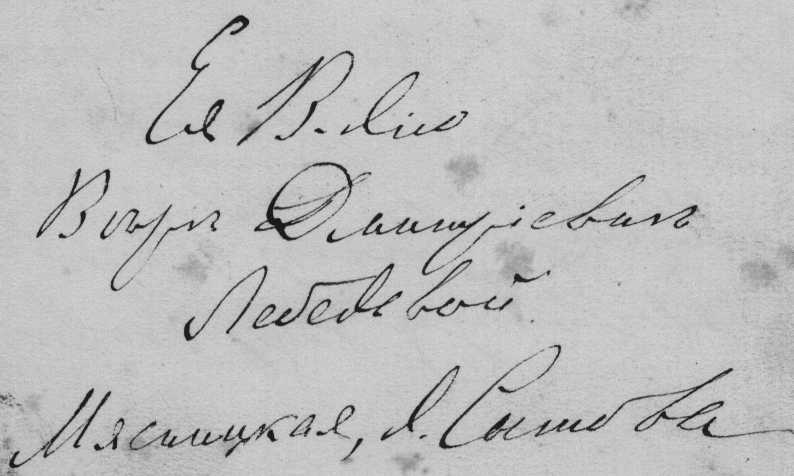 Ея В-дію
Вѣрѣ Дмитріевнѣ
Лебедевой
Мясницкая, д. Сытова